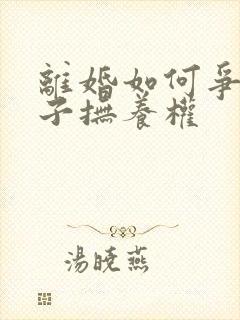 離婚如何爭
子撫養權
湯曉燕